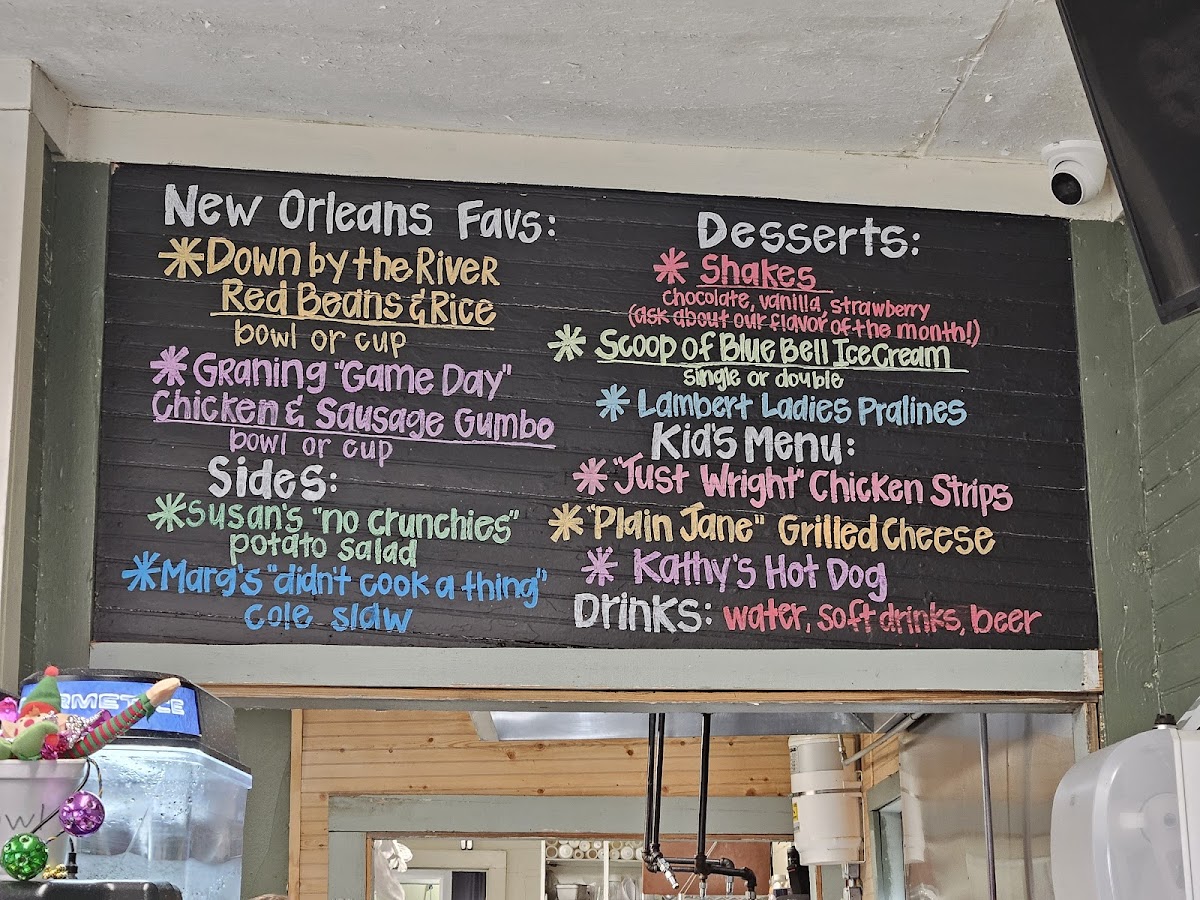 New Orleans Favs:
*Down by the River
Red Beans & Rice
bowl or cup
*Graning "Game Day"
Chicken & Sausage Gumbo
bowl or cup
Sides:
*Susan's "no crunchies"
potato salad
*Marg's "didn't cook a thing"
cole slaw
Desserts:
* Shakes
chocolate, vanilla, strawberry
(ask about our flavor of the month!)
* Scoop of Blue Bell Ice Cream
single or double
* Lambert Ladies Pralines
Kid's Menu:
*"Just Wright" Chicken Strips
*"Plain Jane" Grilled Cheese
* Kathy's Hot Dog
Drinks: water, soft drinks, beer